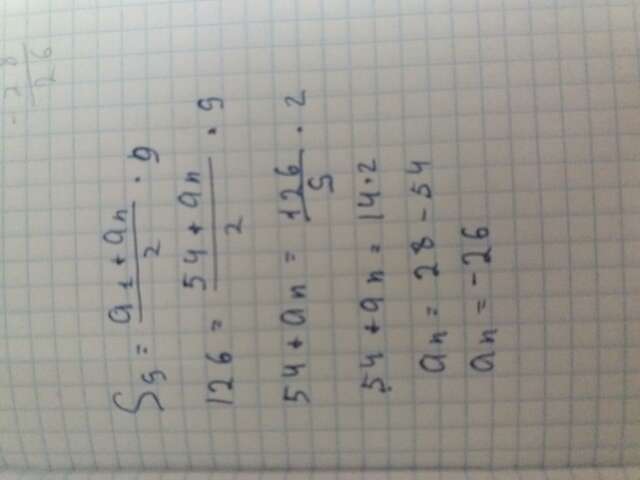 S₉ = (a₁ + aₙ)/2 · 9
126 = (54 + aₙ)/2 · 9
54 + aₙ = 126/9 · 2
54 + aₙ = 14 · 2
aₙ = 28 - 54
aₙ = -26